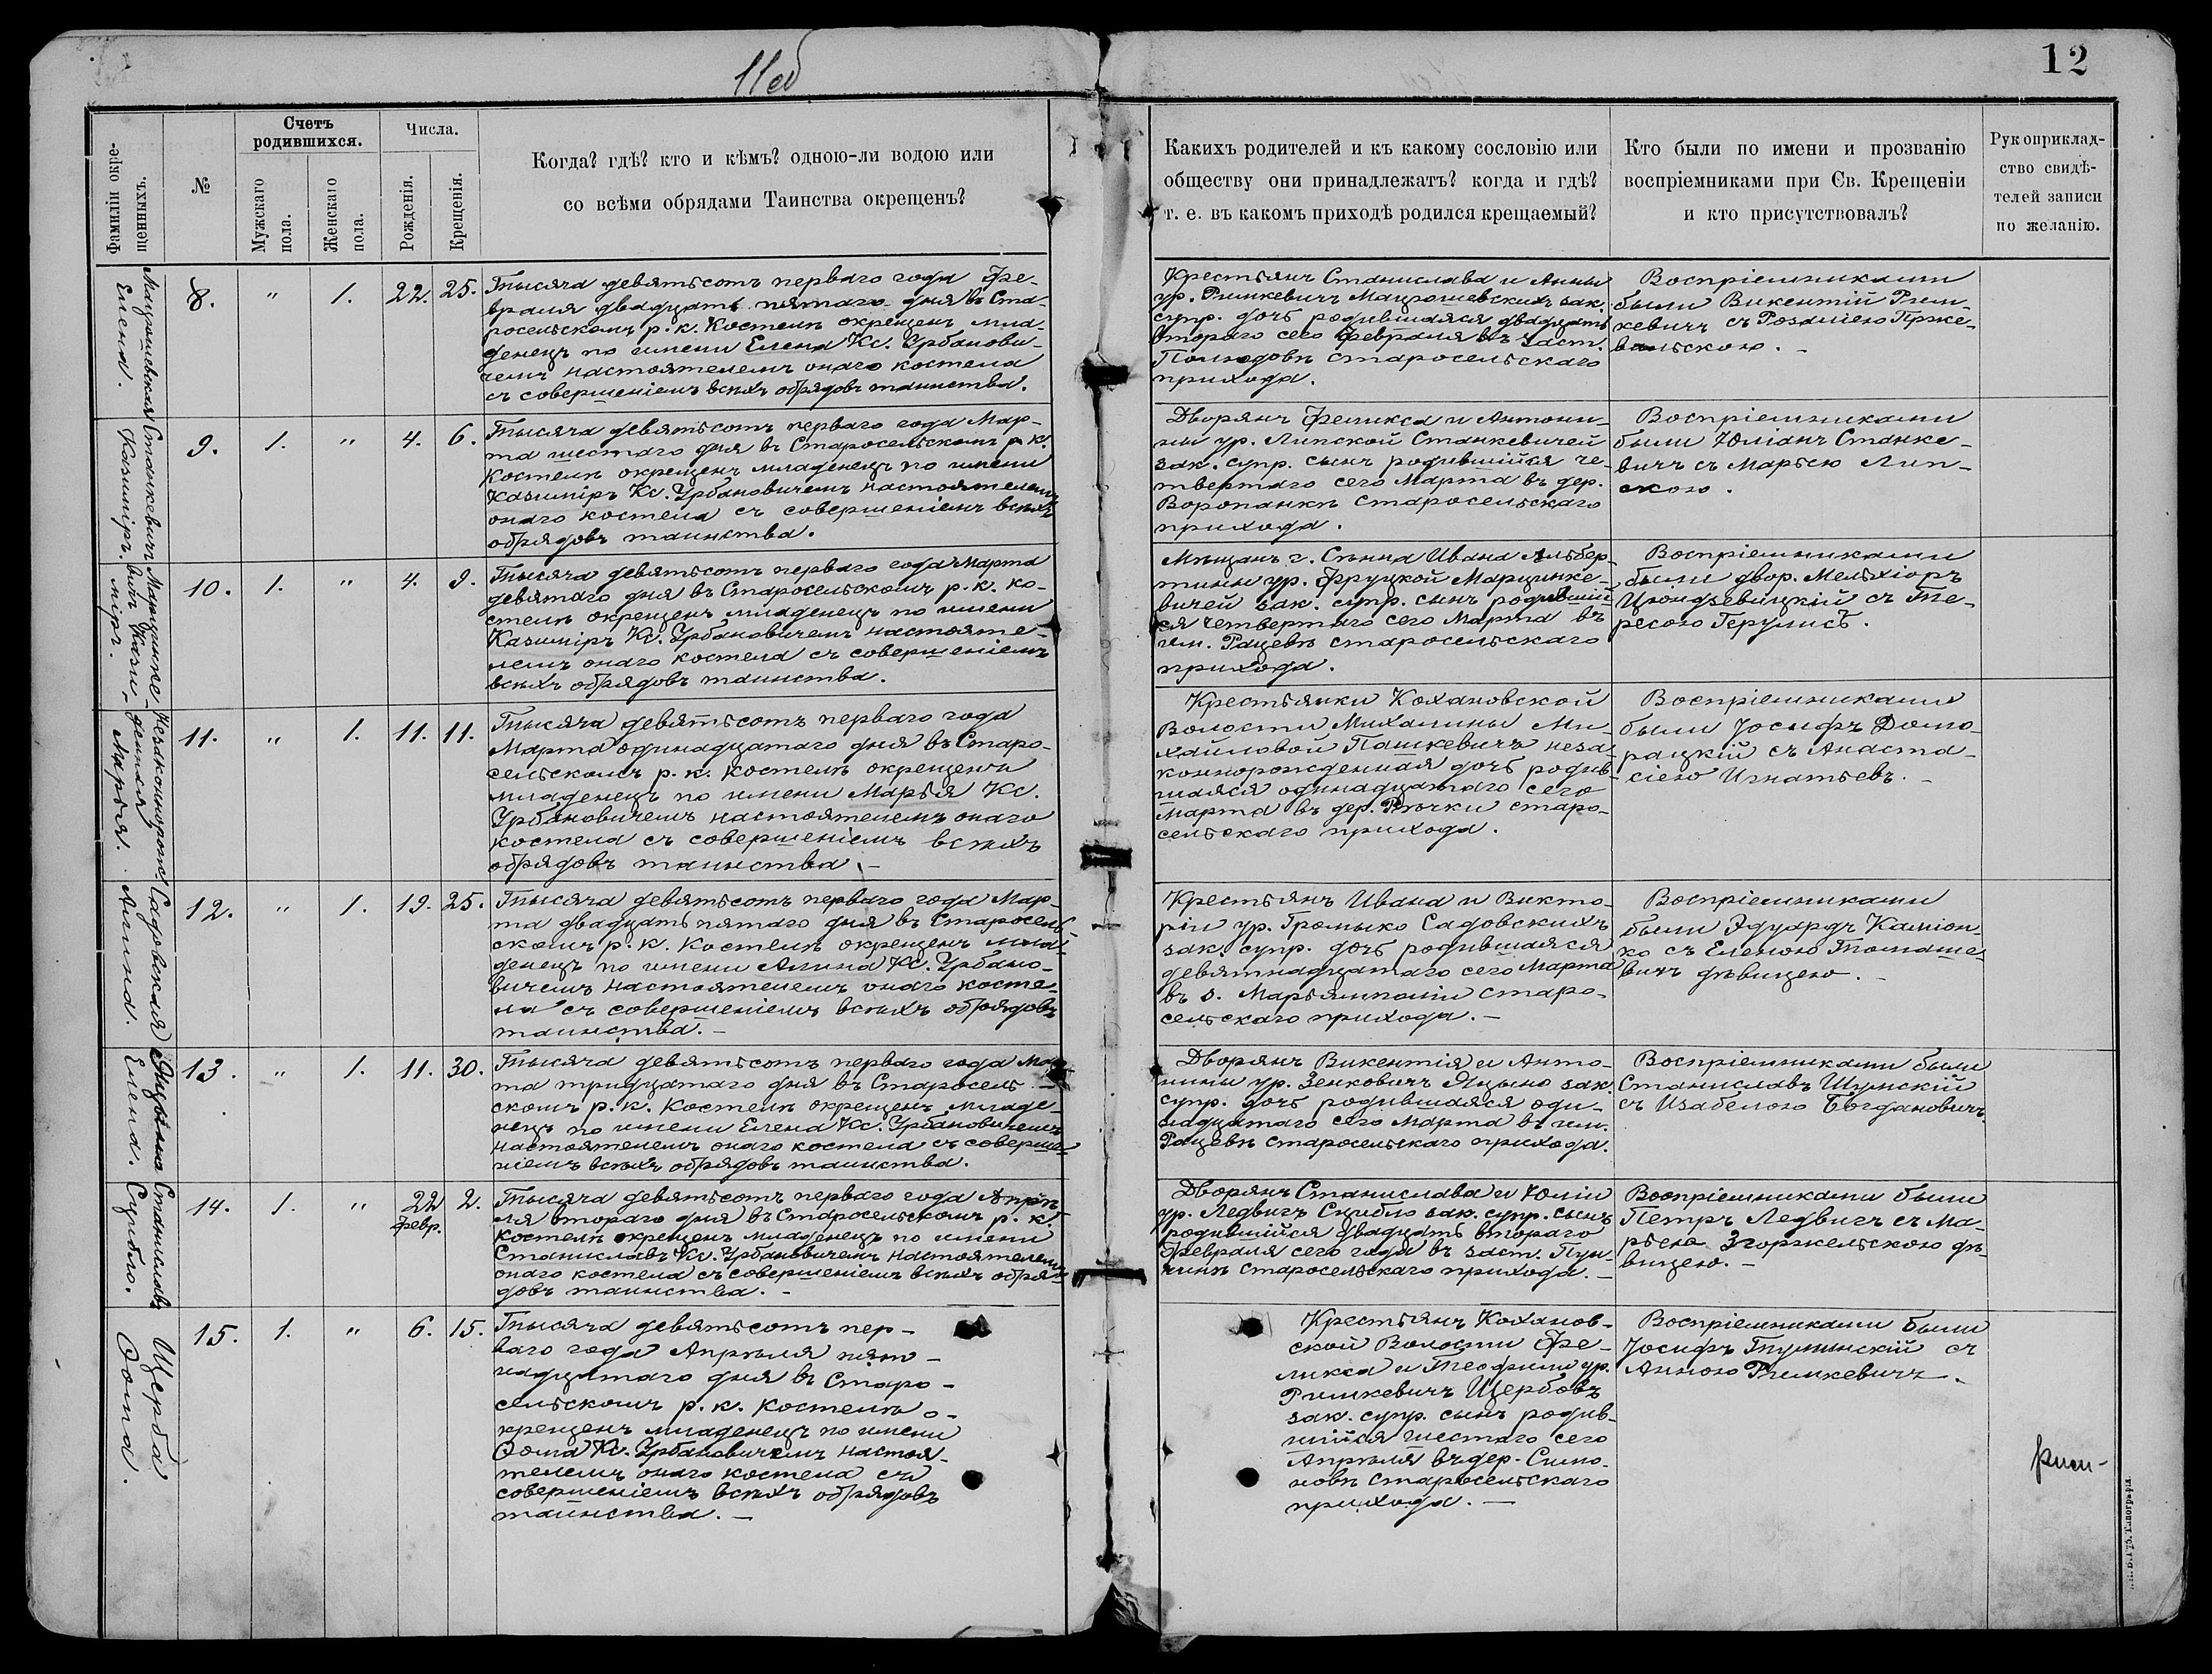 11об
12
Фамиліи окре-
щенныхъ.
№
Счетъ
родившихся.
Мужскаго
пола.
Женскаго
пола.
Числа.
Рожденія.
Крещенія.
Когда? гдѣ? кто и кѣмъ? одною-ли водою или
со всѣми обрядами Таинства окрещенъ?
Какихъ родителей и къ какому сословію или
обществу они принадлежатъ? когда и гдѣ?
т. е. въ какомъ приходѣ родился крещаемый?
Кто были по имени и прозванію
воспріемниками при Св. Крещеніи
и кто присутствовалъ?
Рукоприклад-
ство свидѣ-
телей записи
по желанію.
Мацрошевская
Елена.
8.
"
1.
22.
25.
Тысяча девятьсотъ перваго года Фе-
враля двадцать пятаго дня въ Ста-
росельскомъ р. к. Костелѣ окрещенъ мла-
денецъ по имени Елена Кс. Урбанови-
чемъ настоятелемъ онаго костела
съ совершеніемъ всѣхъ обрядовъ таинства.
Крестьянъ Станислава и Анны
ур. Римкевичъ Мацрошевскихъ зак.
супр. дочь родившаяся двадцать
втораго сего февраля въ заст.
старосельскаго
прихода.
Воспріемниками
были Викентій Рим-
кевичъ съ Розаліею Прже-
вальскою. -
Станкевичъ
Казиміръ.
9.
1.
"
4.
6.
Тысяча девятьсотъ перваго года Мар-
та шестаго дня въ Старосельскомъ р. к.
Костелѣ окрещенъ младенецъ по имени
Казиміръ Кс. Урбановичемъ настоятелемъ
онаго костела съ совершеніемъ всѣхъ
обрядовъ таинства.
Дворянъ Феликса и Антони-
ны ур. Липской Станкевичей
зак. супр. сынъ родившійся че-
твертаго сего Марта въ дер.
Воропанкѣ старосельскаго
прихода.
Воспріемниками
были Юліанъ Станке-
вичъ съ Марьею Лип-
скою.
Марцинке-
вичъ Кази-
міръ.
10.
1.
"
4.
9.
Тысяча девятьсотъ перваго года Марта
девятаго дня въ Старосельскомъ р. к. ко-
стелѣ окрещенъ младенецъ по имени
Казиміръ Кс. Урбановичемъ настояте-
лемъ онаго костела съ совершеніемъ
всѣхъ обрядовъ таинства.
Мѣщанъ г. Сѣнна Ивана Альбер-
тины ур. Фруцкой Марцинке-
вичей зак. супр. сынъ родившій-
ся четвертаго сего Марта въ
им. Рацевѣ старосельскаго
прихода.
Воспріемниками
были двор. Мельхіоръ
Цюндзевицкій съ Те-
ресою Герулисъ.
Незаконнорож-
денная
Марья.
11.
"
1.
11.
11.
Тысяча девятьсотъ перваго года
Марта одинадцатаго дня въ Старо-
сельскомъ р. к. костелѣ окрещенъ
младенецъ по имени Марья Кс.
Урбановичемъ настоятелемъ онаго
костела съ совершеніемъ всѣхъ
обрядовъ таинства. -
Крестьянки Кохановской
Волости Михалины Ми-
хайловой Пашкевичъ неза-
коннорожденная дочь родив-
шаяся одинадцатаго сего
Марта въ дер. Рѣчки старо-
сельскаго прихода.
Воспріемниками
были Іосифъ Домо-
рацкій съ Анаста-
сіею Игнатьевъ. -
Садовская
Алина.
12.
"
1.
19.
25.
Тысяча девятьсотъ перваго года Мар-
та двадцать пятаго дня въ Старосель-
скомъ р. к. Костелѣ окрещенъ мла-
денецъ по имени Алина Кс. Урбано-
вичемъ настоятелемъ онаго косте-
ла съ совершеніемъ всѣхъ обрядовъ
таинства. -
Крестьянъ Ивана и Викто-
ріи ур. Громыко Садовскихъ
зак. супр. дочь родившаяся
девятнадцатаго сего Марта
въ з. Марьямполіи старо-
сельскаго прихода. -
Воспріемниками
были Эдуардъ Каміон-
ко съ Еленою Томаше-
вичъ дѣвицею. -
Яцыно
Елена.
13.
"
1.
11.
30.
Тысяча девятьсотъ перваго года Мар-
та тридцатаго дня въ Старосель-
скомъ р. к. Костелѣ окрещенъ младе-
нецъ по имени Елена Кс. Урбановичемъ
настоятелемъ онаго костела съ соверше-
ніемъ всѣхъ обрядовъ таинства.
Дворянъ Викентія и Анто-
нины ур. Зенковичъ Яцыно зак.
супр. дочь родившаяся оди-
надцатаго сего Марта въ им.
Рацевѣ старосельскаго прихода.
Воспріемниками были
Станиславъ Шумскій
съ Изабелою Богдановичъ.
Станиславъ
Сцибло.
14.
1.
"
22
февр.
2.
Тысяча девятьсотъ перваго года Апрѣ-
ля втораго дня въ Старосельскомъ р. к.
костелѣ окрещенъ младенецъ по имени
Станиславъ Кс. Урбановичемъ настоятелемъ
онаго костела съ совершеніемъ всѣхъ обря-
довъ таинства. -
Дворянъ Станислава и Юліи
ур. Ледвигъ Сцибло зак. супр. сынъ
родившійся двадцать втораго
Февраля сего года въ заст.
старосельскаго прихода. -
Воспріемниками были
Петръ Ледвигъ съ Ма-
рьею Згоржельскою дѣ-
вицею. -
Щерба
Ѳома.
15.
1.
"
6.
15.
Тысяча девятьсотъ пер-
ваго года Апрѣля пят-
надцатаго дня въ Старо-
сельскомъ р. к. костелѣ о-
крещенъ младенецъ по имени
Ѳома Кс. Урбановичемъ настоя-
телемъ онаго костела съ
совершеніемъ всѣхъ обрядовъ
таинства. -
Крестьянъ Коханов-
ской Волости Фе-
ликса и Теофили ур.
Римкевичъ Щербовъ
зак. супр. сынъ родив-
шійся шестаго сего
Апрѣля въ дер. Симо-
новѣ старосельскаго
прихода. -
Воспріемниками были
Іосифъ Туминскій съ
Анною Римкевичъ.